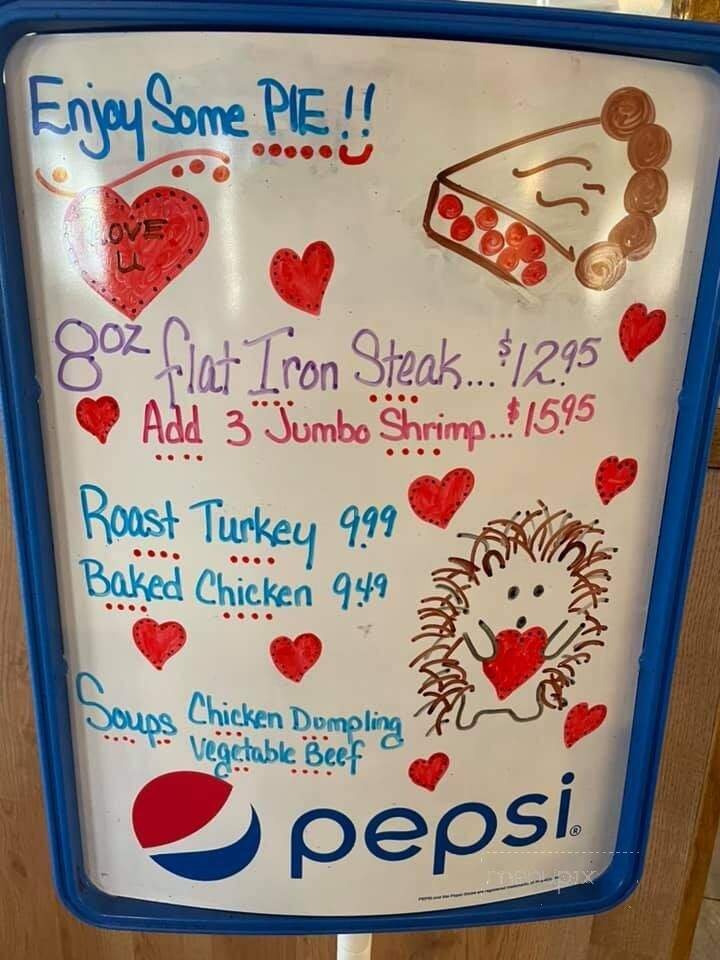 Enjoy Some PIE!!
LOVE
U
8oz flat Iron Steak...$12.95
Add 3 Jumbo Shrimp...$15.95
Roast Turkey 9.99
Baked Chicken 9.49
Soups Chicken Dumpling
Vegetable Beef
pepsi®
menupix